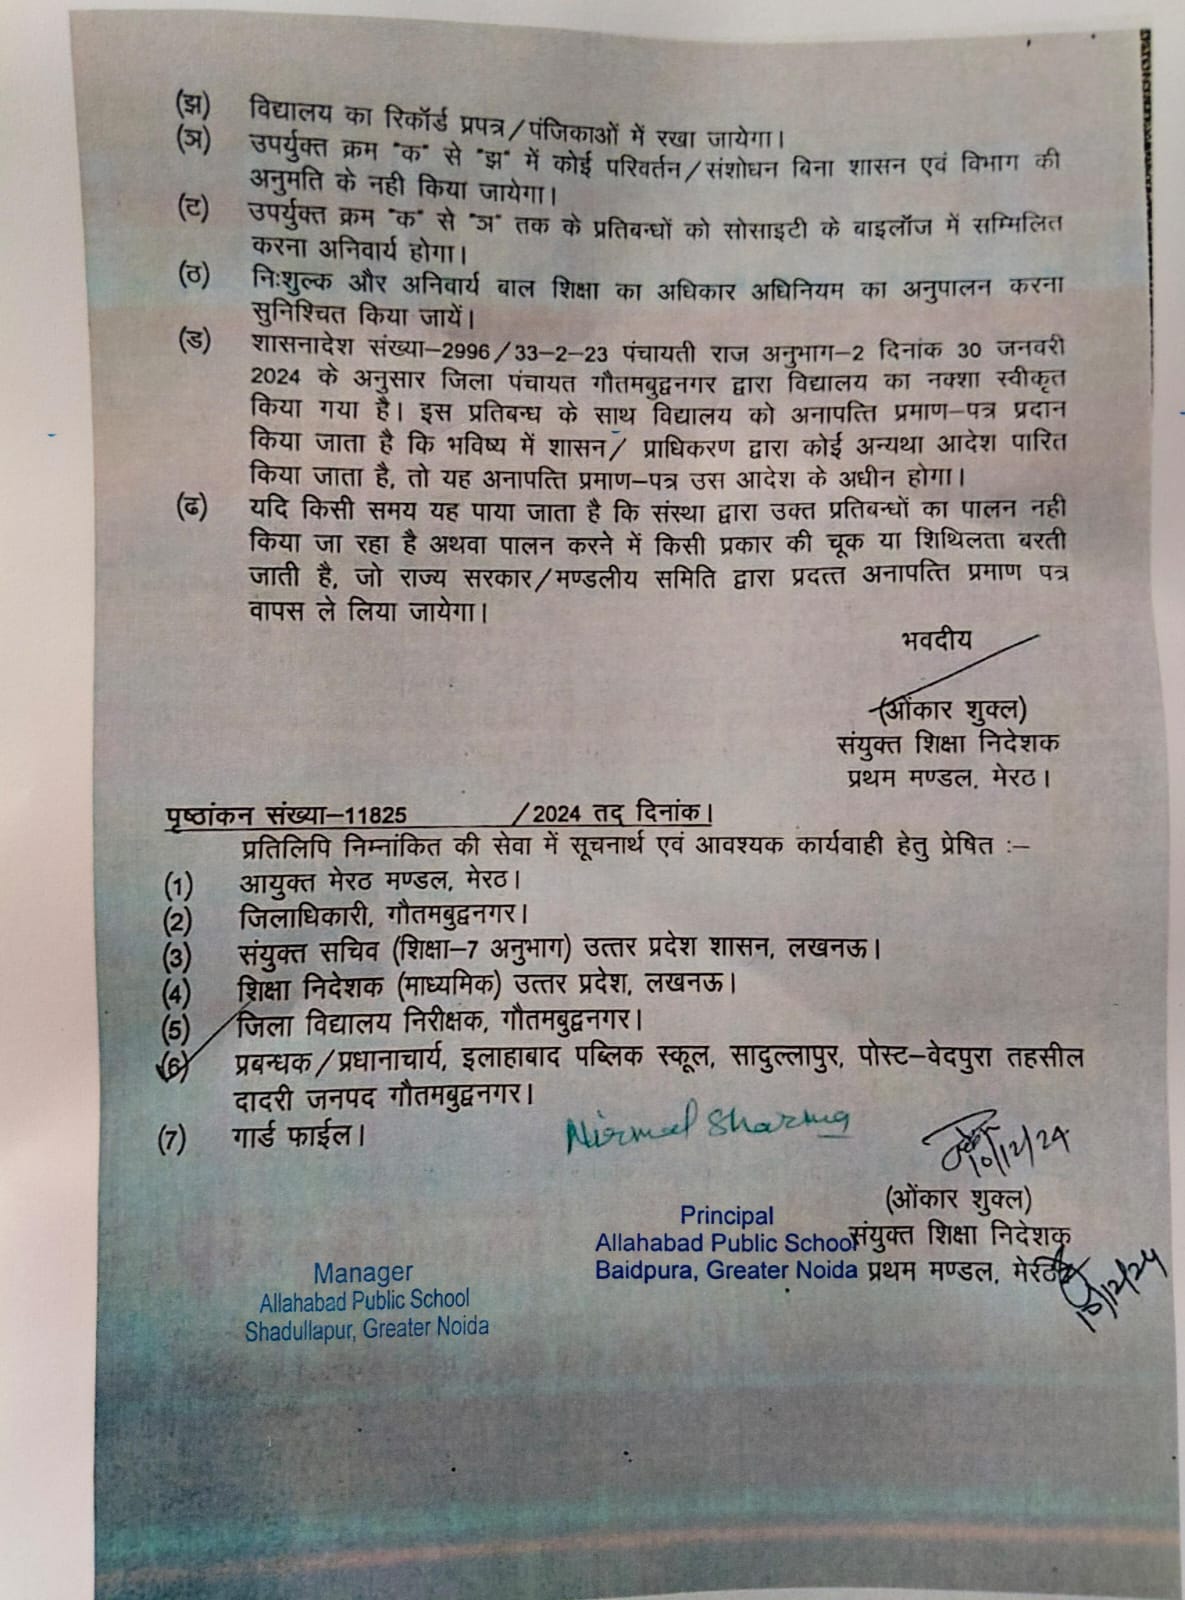 (झ) विद्यालय का रिकॉर्ड प्रपत्र/पंजिकाओं में रखा जायेगा।
(ञ) उपर्युक्त क्रम "क" से "झ" में कोई परिवर्तन/संशोधन बिना शासन एवं विभाग की
अनुमति के नही किया जायेगा।
(ट) उपर्युक्त क्रम "क" से "ञ" तक के प्रतिबन्धों को सोसाइटी के बाइलॉज में सम्मिलित
करना अनिवार्य होगा।
(ठ) निःशुल्क और अनिवार्य बाल शिक्षा का अधिकार अधिनियम का अनुपालन करना
सुनिश्चित किया जायें।
(ड) शासनादेश संख्या-2996/33-2-23 पंचायती राज अनुभाग-2 दिनांक 30 जनवरी
2024 के अनुसार जिला पंचायत गौतमबुद्वनगर द्वारा विद्यालय का नक्शा स्वीकृत
किया गया है। इस प्रतिबन्ध के साथ विद्यालय को अनापत्ति प्रमाण-पत्र प्रदान
किया जाता है कि भविष्य में शासन/ प्राधिकरण द्वारा कोई अन्यथा आदेश पारित
किया जाता है, तो यह अनापत्ति प्रमाण-पत्र उस आदेश के अधीन होगा।
(ढ) यदि किसी समय यह पाया जाता है कि संस्था द्वारा उक्त प्रतिबन्धों का पालन नही
किया जा रहा है अथवा पालन करने में किसी प्रकार की चूक या शिथिलता बरती
जाती है, जो राज्य सरकार/मण्डलीय समिति द्वारा प्रदत्त अनापत्ति प्रमाण पत्र
वापस ले लिया जायेगा।
भवदीय
(ओंकार शुक्ल)
संयुक्त शिक्षा निदेशक
प्रथम मण्डल, मेरठ।
पृष्ठांकन संख्या-11825 /2024 तद् दिनांक।
प्रतिलिपि निम्नांकित की सेवा में सूचनार्थ एवं आवश्यक कार्यवाही हेतु प्रेषित :-
(1) आयुक्त मेरठ मण्डल, मेरठ।
(2) जिलाधिकारी, गौतमबुद्वनगर।
(3) संयुक्त सचिव (शिक्षा-7 अनुभाग) उत्तर प्रदेश शासन, लखनऊ।
(4) शिक्षा निदेशक (माध्यमिक) उत्तर प्रदेश, लखनऊ।
(5) जिला विद्यालय निरीक्षक, गौतमबुद्वनगर।
(6) प्रबन्धक/प्रधानाचार्य, इलाहाबाद पब्लिक स्कूल, सादुल्लापुर, पोस्ट-वेदपुरा तहसील
दादरी जनपद गौतमबुद्वनगर।
(7) गार्ड फाईल।
Nirmal Sharma
10/12/24
(ओंकार शुक्ल)
संयुक्त शिक्षा निदेशक
प्रथम मण्डल, मेरठ
10/12/24
Principal
Allahabad Public School
Baidpura, Greater Noida
Manager
Allahabad Public School
Shadullapur, Greater Noida